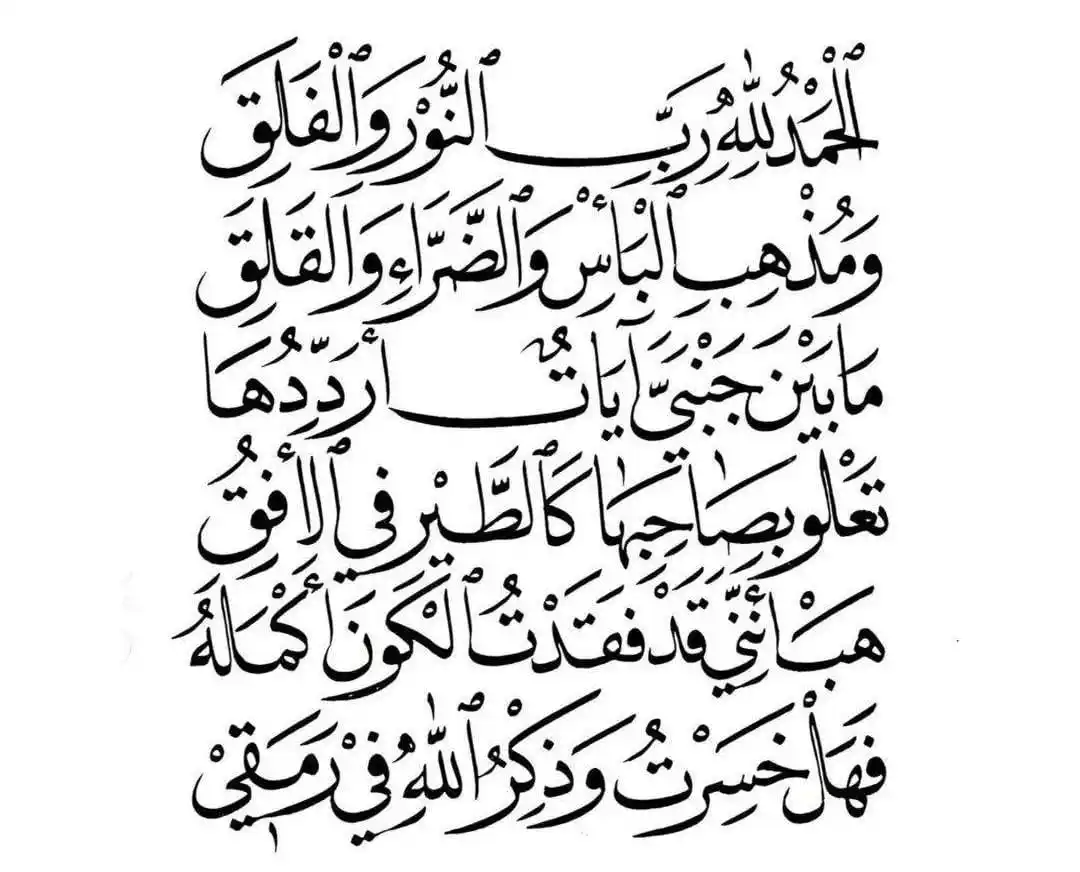 ٱلْحَمْدُ لِلّٰهِ رَبِّ ٱلنُّوْرِ وَٱلْفَلَقِ
وَمُذْهِبِ ٱلْبَأْسِ وَٱلضَّرَّاءِ وَالْقَلَقِ
مَا بَيْنَ جَنْبَيَّ آيَاتٌ أُرَدِّدُهَا
تَعْلُو بِصَاحِبِهَا كَٱلطَّيْرِ فِي ٱلْأُفُقِ
هَبْ أَنَّنِي قَدْ فَقَدْتُ ٱلْكَوْنَ أَكْمَلَهُ
فَهَلْ خَسِرْتُ وَذِكْرُ ٱللّٰهِ فِيْ رَمَقِيْ